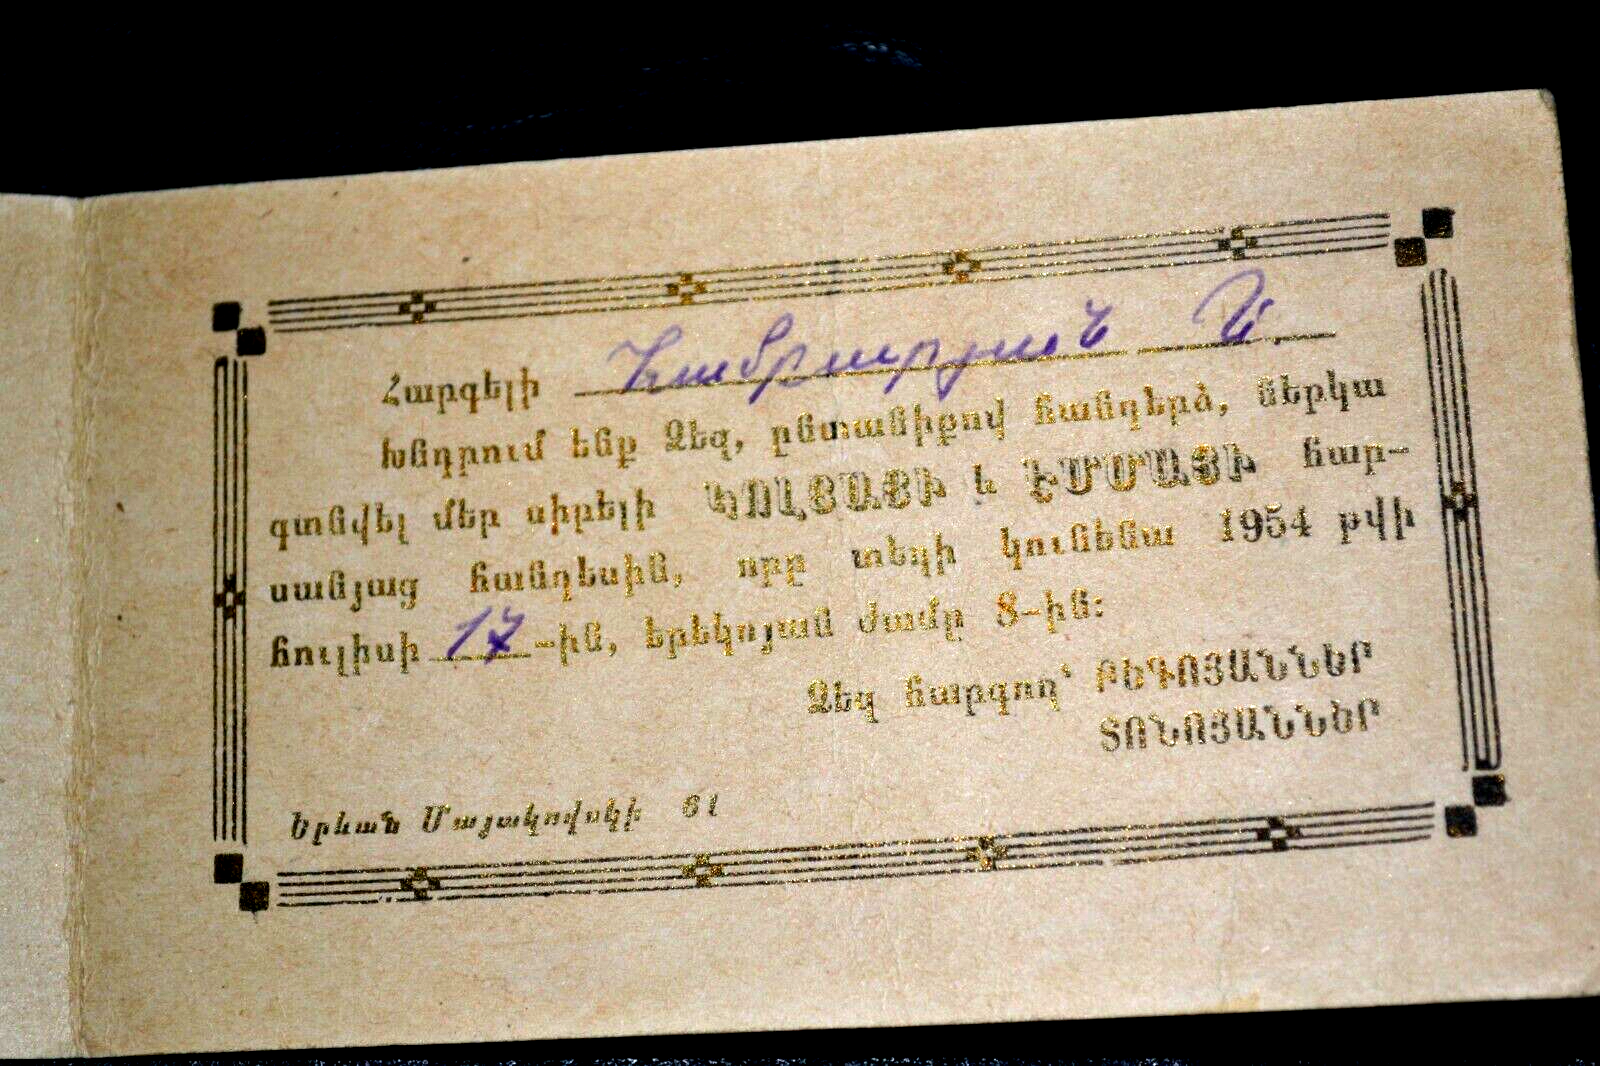 Հարգելի Համբարյան Ա.
Խնդրում ենք Ձեզ, ընտանիքով հանդերձ, ներկա
գտնվել մեր սիրելի ԿՈԼՅԱՅԻ և ԷՄՄԱՅԻ հար-
սանյաց հանդեսին, որը տեղի կունենա 1954 թվի
հուլիսի 17-ին, երեկոյան ժամը 8-ին։
Ձեզ հարգող՝ ԲԵԳՈՅԱՆՆԵՐ
ՏՈՆՈՅԱՆՆԵՐ
Երևան Մայակովսկի 61